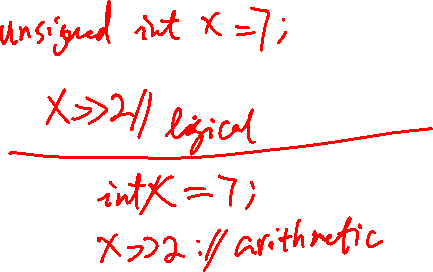 unsigned int x = 7;
x>>2// logical
int x = 7;
x>>2 :// arithmetic